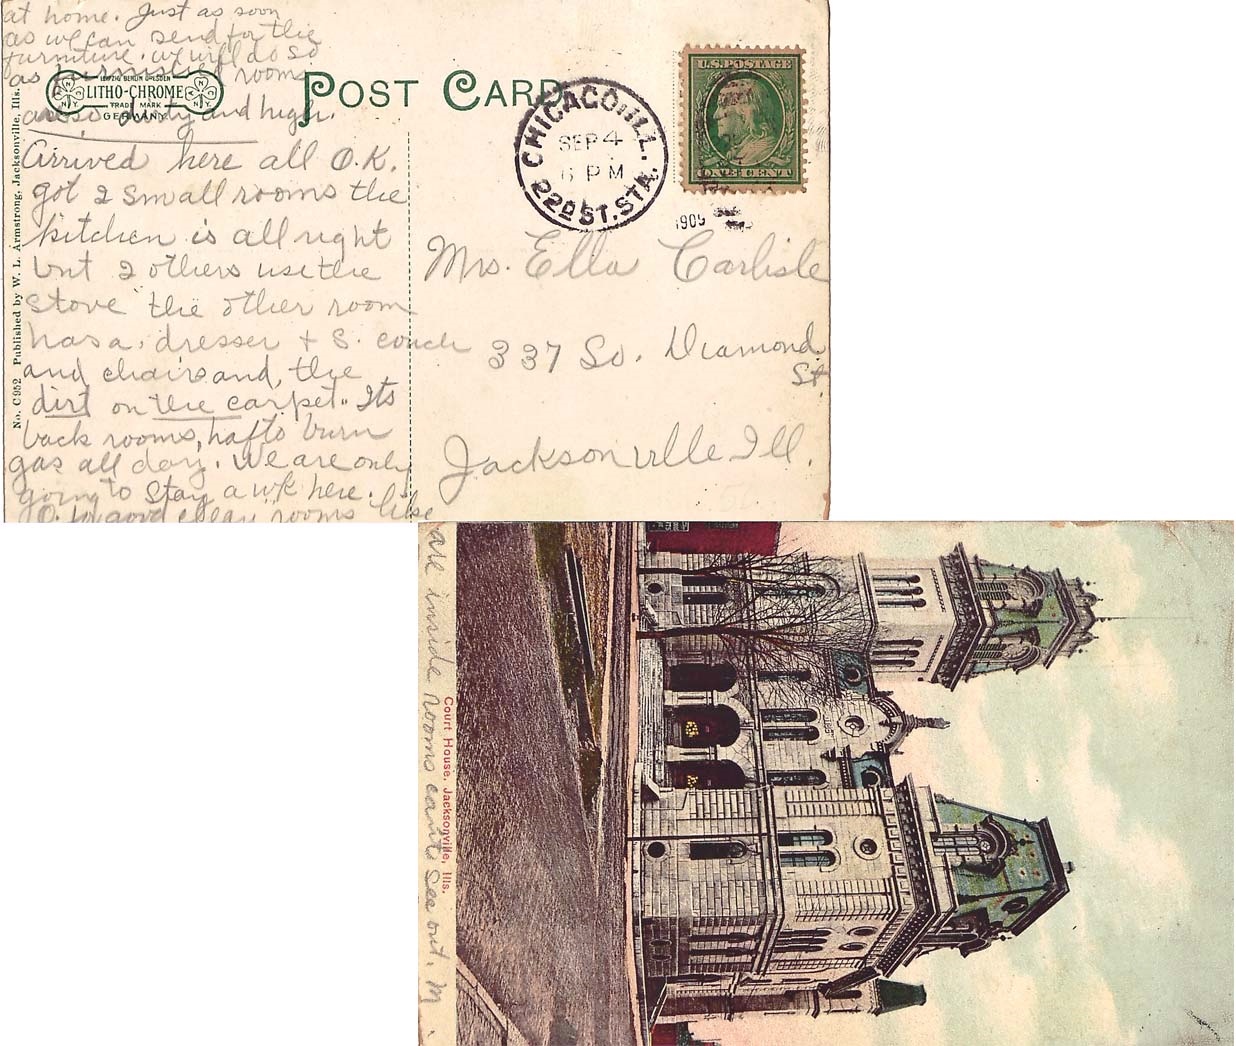 at home. Just as soon
as we can send for the
furniture we will do so
as furnished rooms
are so dirty and high.
LEIPZIG BERLIN DRESDEN
LITHO-CHROME
TRADE MARK
GERMANY
N Y
N Y
POST CARD
CHICAGO, ILL.
SEP 4
6 PM
22D ST. STA.
1909
U.S. POSTAGE
ONE CENT
No. C952 Published by W. L. Armstrong, Jacksonville, Ills.
Arrived here all O.K.
got 2 small rooms the
kitchen is all right
but 2 others use the
stove the other room
has a dresser + S. couch
and chairs and, the
dirt on the carpet. Its
back rooms, haf to burn
gas all day. We are only
going to stay a wk here.
good clean rooms like
Mrs. Ella Carlisle
337 So. Diamond
St
Jacksonville Ill.
are inside rooms cant see out. M.
Court House, Jacksonville, Ills.